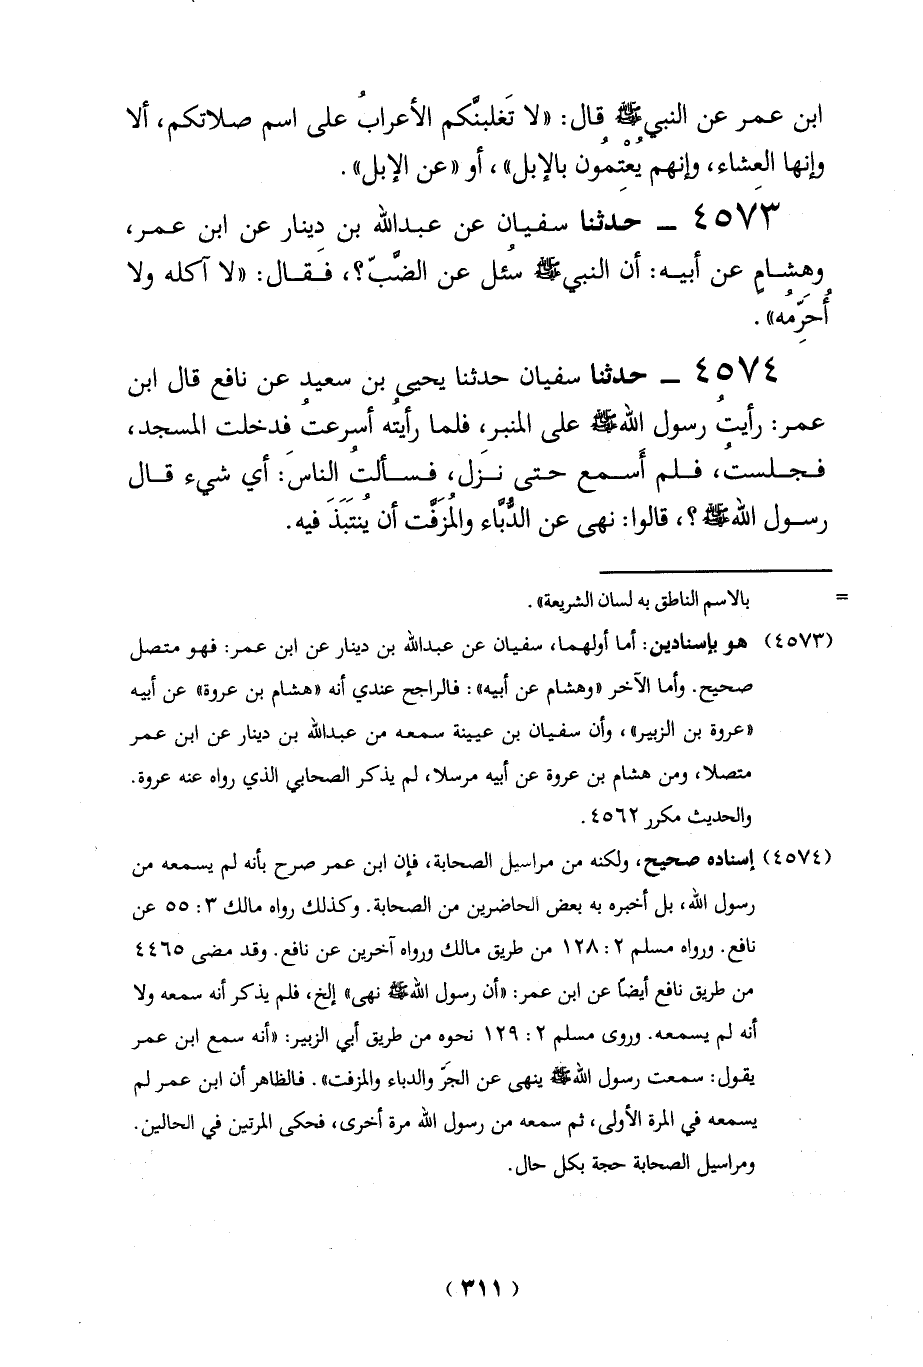 ابن عمر عن النبي ﷺ قال: «لا تَغلبنَّكم الأعرابُ على اسم صلاتكم، ألا
وإنها العِشاء، وإنهم يُعْتِمُون بالإبل»، أو «عن الإبل».
٤٥٧٣ ـ حدثنا سفيان عن عبدالله بن دينار عن ابن عمر،
وهشامٍ عن أبيه: أن النبي ﷺ سُئل عن الضَّبّ؟، فقال: «لا آكله ولا
أُحَرِّمُه».
٤٥٧٤ ـ حدثنا سفيان حدثنا يحيى بن سعيد عن نافع قال ابن
عمر: رأيتُ رسول الله ﷺ على المنبر، فلما رأيتُه أسرعتُ فدخلت المسجد،
فجلستُ، فلم أَسمع حتى نَزل، فسألتُ الناسَ: أي شيء قال
رسول الله ﷺ؟، قالوا: نهى عن الدُّبَّاء والمُزَفَّت أن يُنْتَبَذَ فيه.
= بالاسم الناطق به لسان الشريعة».
(٤٥٧٣) هو بإسنادين: أما أولهما، سفيان عن عبدالله بن دينار عن ابن عمر: فهو متصل
صحيح. وأما الآخر «وهشام عن أبيه»: فالراجح عندي أنه «هشام بن عروة» عن أبيه
«عروة بن الزبير»، وأن سفيان بن عيينة سمعه من عبدالله بن دينار عن ابن عمر
متصلا، ومن هشام بن عروة عن أبيه مرسلا، لم يذكر الصحابي الذي رواه عنه عروة.
والحديث مكرر ٤٥٦٢.
(٤٥٧٤) إسناده صحيح، ولكنه من مراسيل الصحابة، فإن ابن عمر صرح بأنه لم يسمعه من
رسول الله، بل أخبره به بعض الحاضرين من الصحابة. وكذلك رواه مالك ٣: ٥٥ عن
نافع. ورواه مسلم ٢: ١٢٨ من طريق مالك ورواه آخرين عن نافع. وقد مضى ٤٤٦٥
من طريق نافع أيضاً عن ابن عمر: «أن رسول الله ﷺ نهى» إلخ، فلم يذكر أنه سمعه ولا
أنه لم يسمعه. وروى مسلم ٢: ١٢٩ نحوه من طريق أبي الزبير: «أنه سمع ابن عمر
يقول: سمعت رسول الله ﷺ ينهى عن الجرّ والدباء والمزفت». فالظاهر أن ابن عمر لم
يسمعه في المرة الأولى، ثم سمعه من رسول الله مرة أخرى، فحكى المرتين في الحالين.
ومراسيل الصحابة حجة بكل حال.
(٣١١)